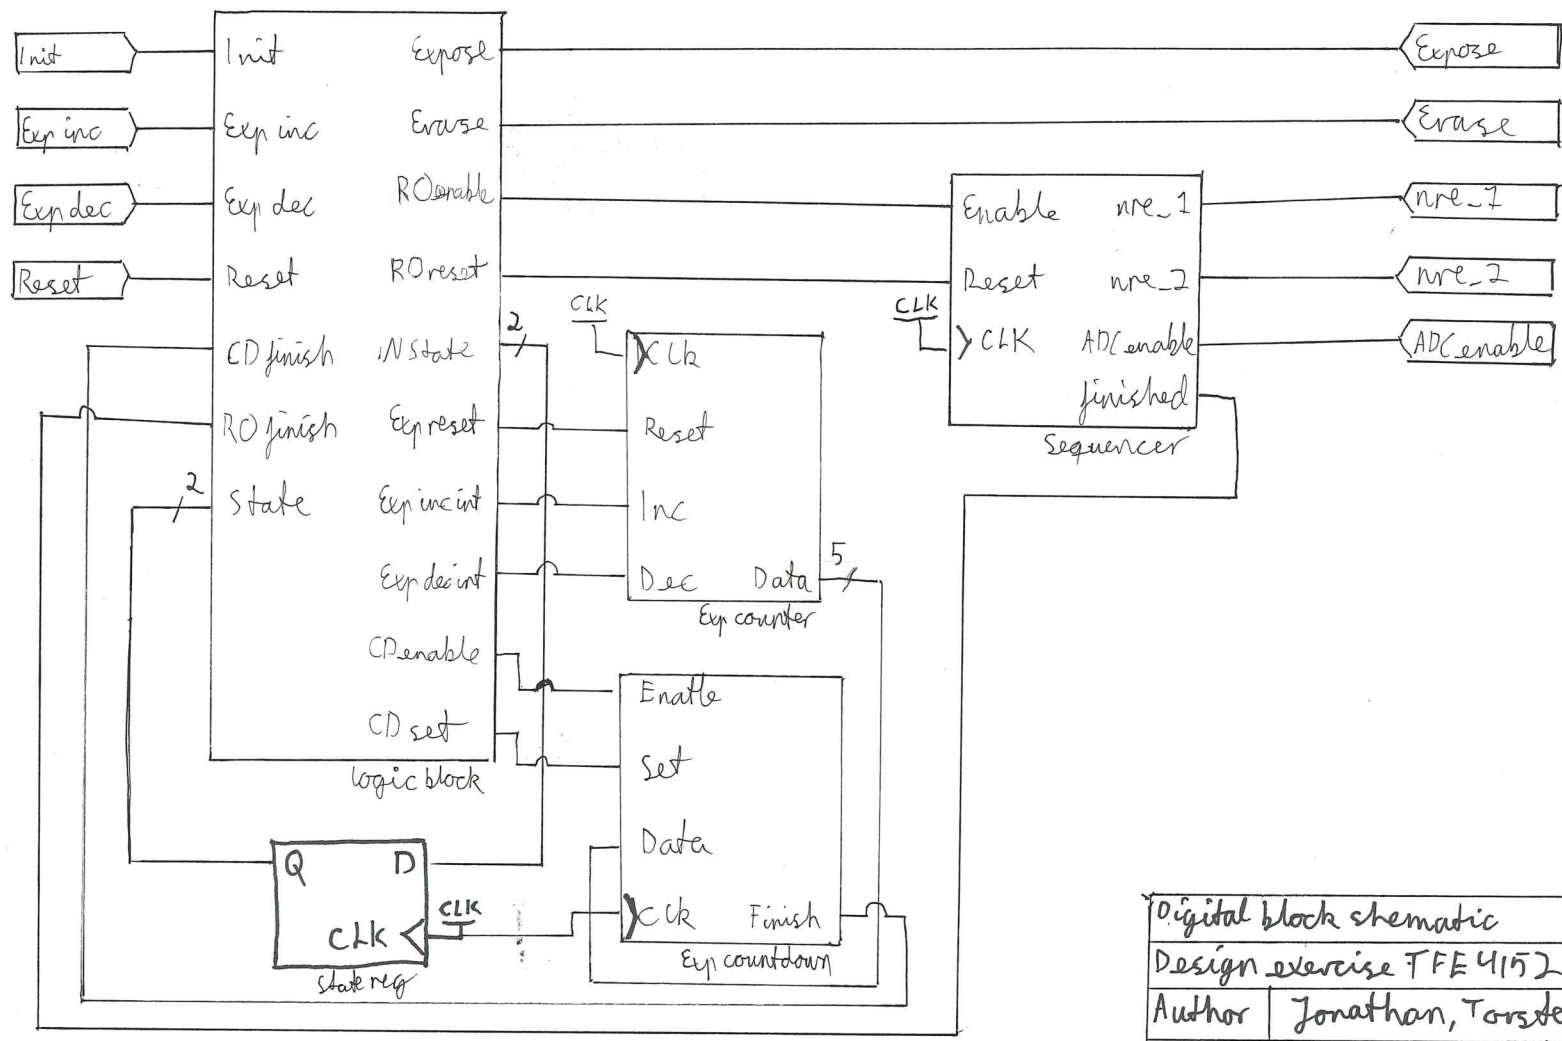 Init
Exp inc
Exp dec
Reset
Init
Exp inc
Exp dec
Reset
CD finish
RO finish
State
2
Expose
Erase
RO enable
RO reset
NState
2
Exp reset
Exp inc int
Exp dec int
CD enable
CD set
logic block
CLK
Clk
Reset
Inc
Dec
Data
5
Exp counter
Enable
Set
Data
Clk
Finish
Exp countdown
Q
D
CLK
CLK
State reg
CLK
Enable
Reset
CLK
nre_1
nre_2
ADC enable
finished
Sequencer
Expose
Erase
nre_1
nre_2
ADC enable
Digital block shematic
Design exercise TFE4152
Author Jonathan, Torste